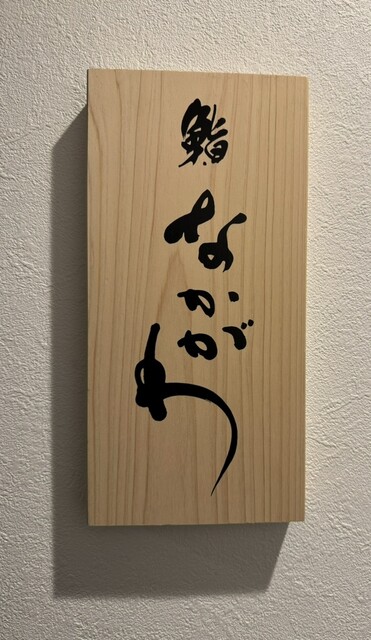 鮨 なかがわ